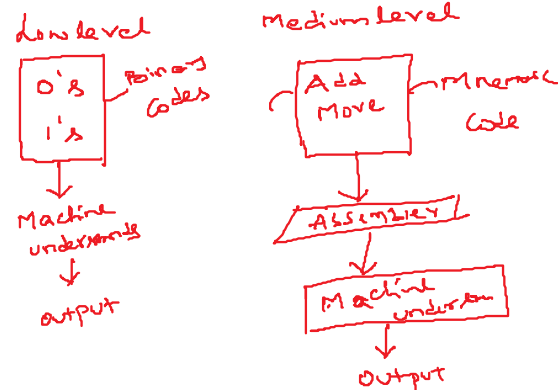 Low level
0's
1's
Binary
Codes
Machine
understands
output
Medium level
Add
Move
Mnemonic
Code
Assembler
Machine
output